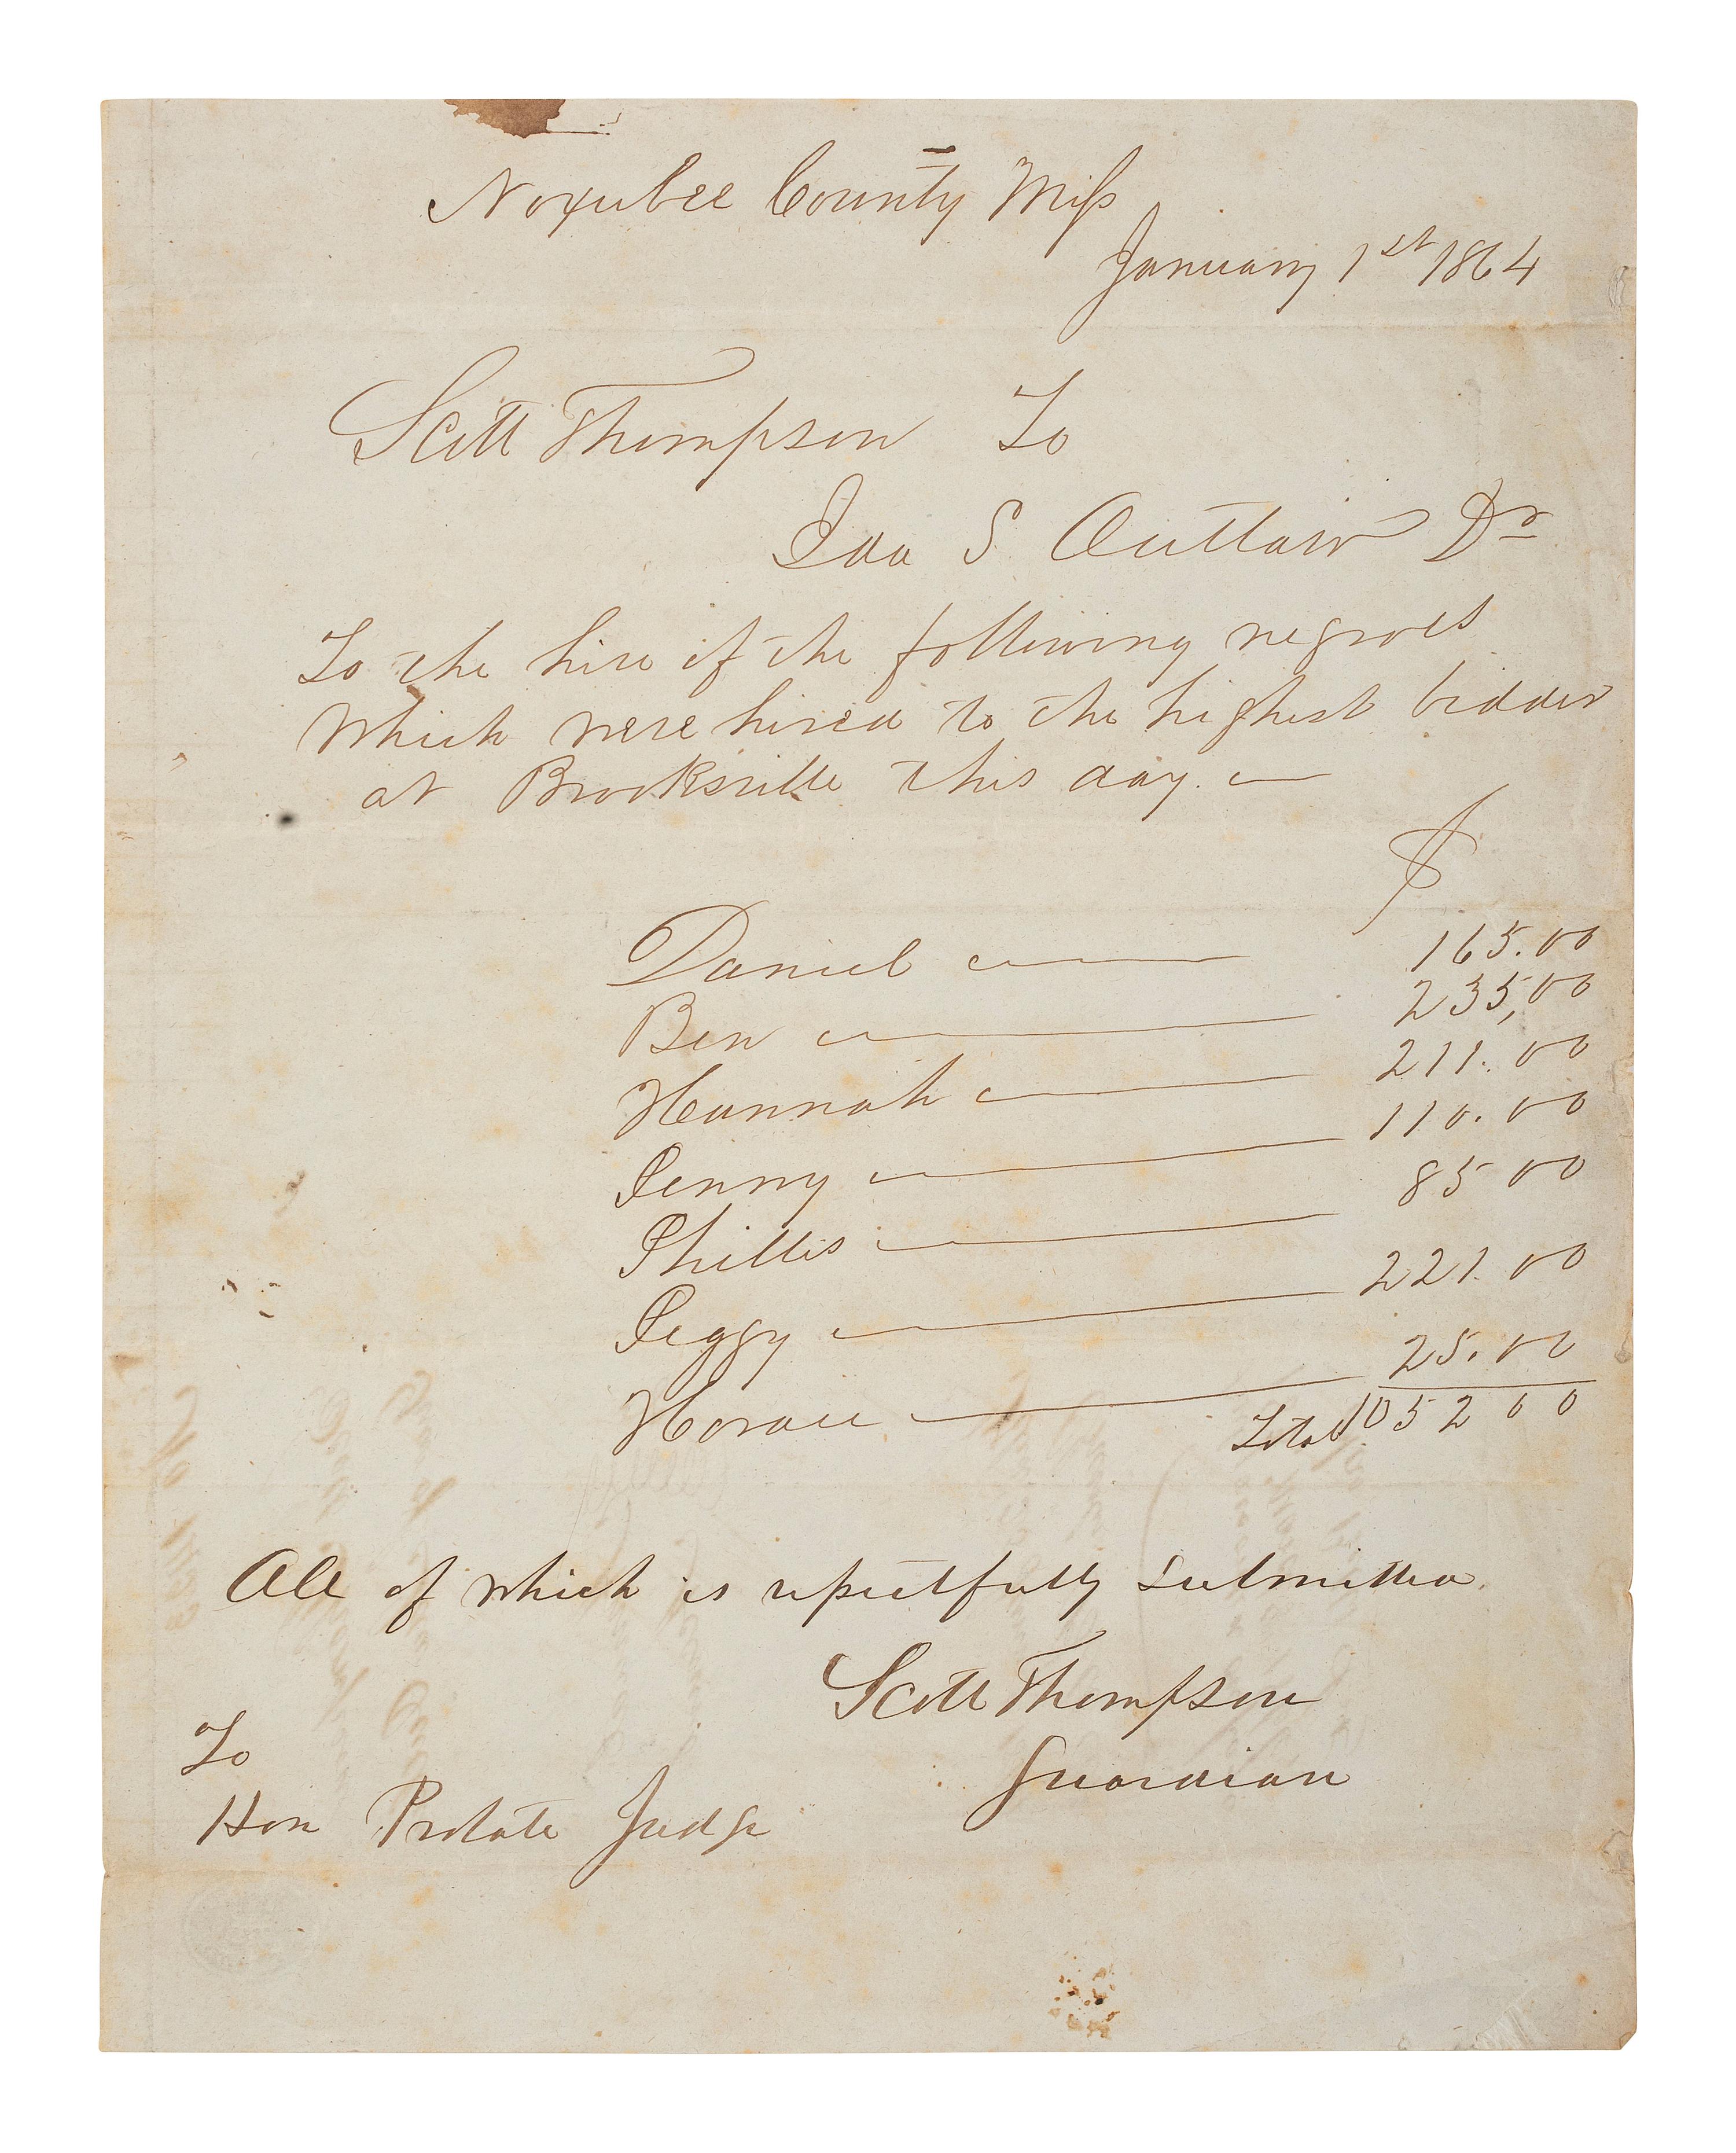 Noxubee County Miss
January 1st 1864
Scott Thompson To
Ida S Outlaw Dr
To the hire of the following negroes
which were hired to the highest bidder
at Brooksville this day.
$
Daniel 165.00
Ben 235,00
Hannah 211.00
Penny 110.00
Phillis 85 00
Peggy 221.00
Horace 25.00
Total 1052 00
All of which is respectfully submitted.
Scott Thompson
Guardian
To
Hon Probate Judge